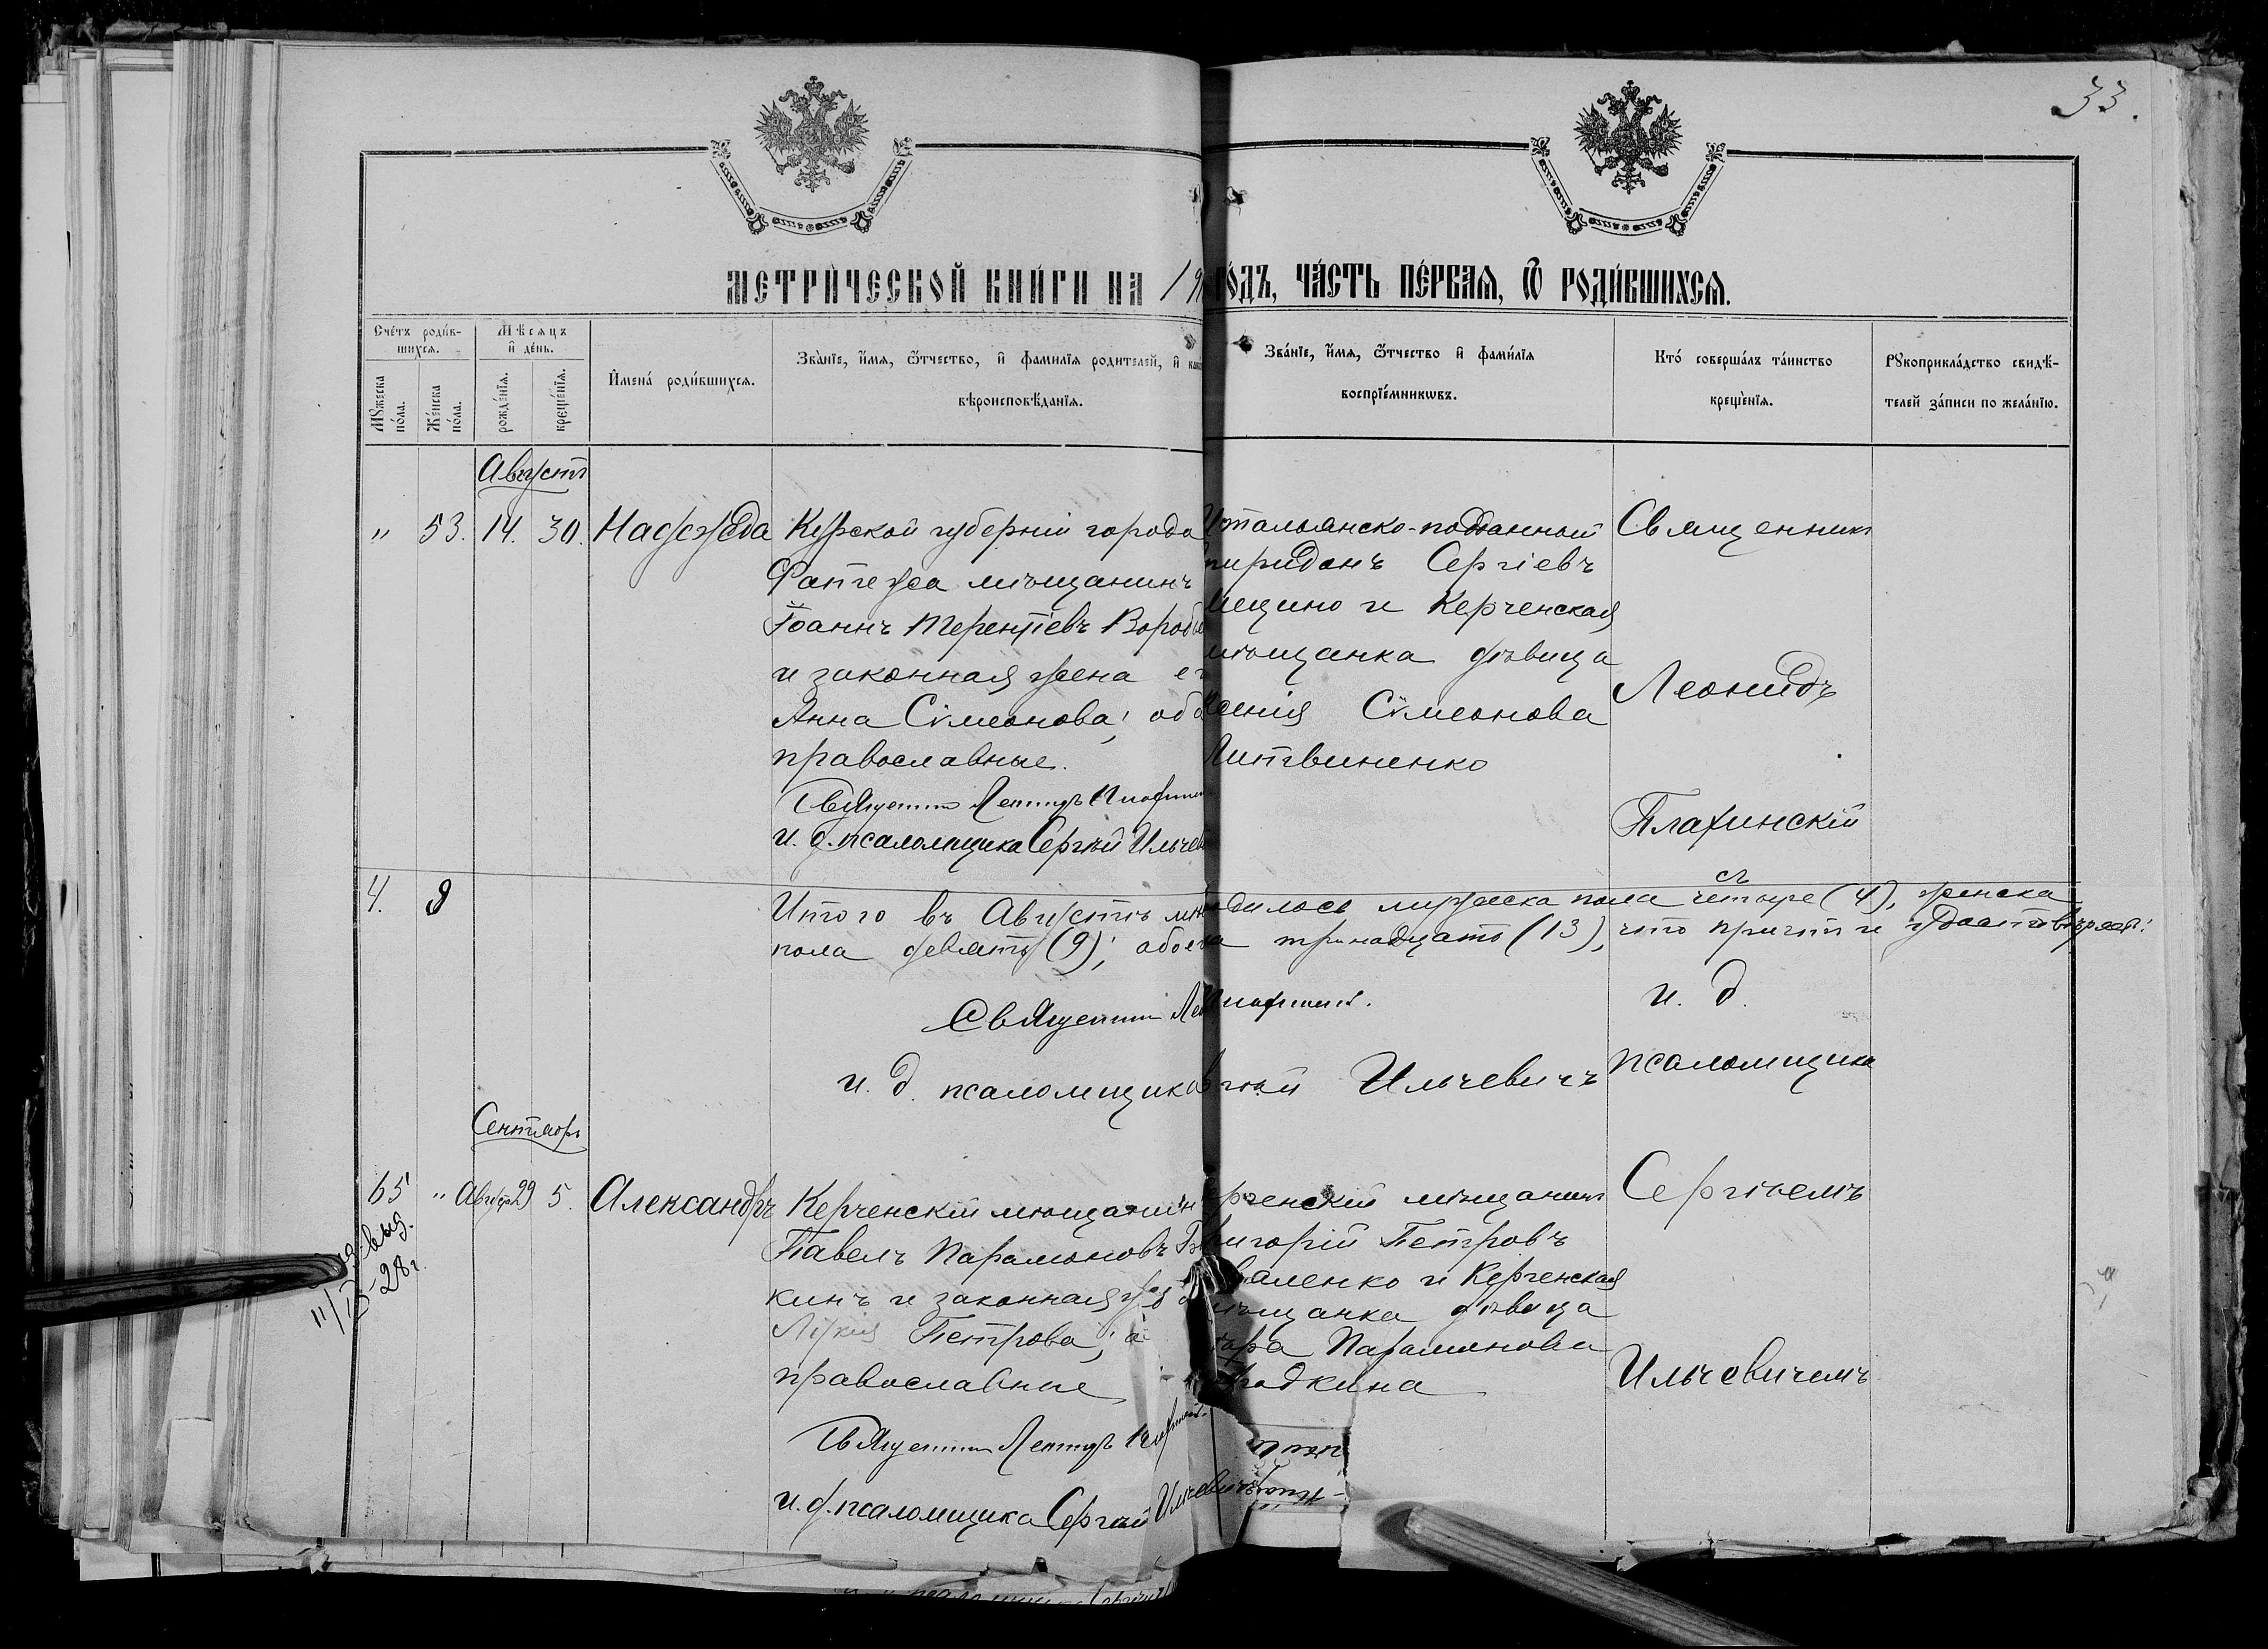 33.
МЕТРИ́ЧЕСКОЙ КНИ́ГИ НА 19
ГОДЪ, ЧА́СТЬ ПЕ́РВАЯ, Ѿ РОДИ́ВШИХСЯ.
Сче́тъ роди́в-
шихся.
Му́жеска по́ла.
Же́нска по́ла.
Мѣсяцъ и де́нь.
рожде́нїя.
креще́нїя.
Имена́ роди́вшихся.
Зва́нїе, и́мя, о́тчество, и фами́лїя родителей, и како
вѣроисповѣданїя.
Зва́нїе, и́мя, о́тчество и фами́лїя
воспрїе́мниковъ.
Кто́ соверша́лъ та́инство
креще́нїя.
Рукоприкла́дство свидѣ-
телей за́писи по жела́нїю.
Августъ
" 53. 14. 30. Надежда
Курской губерніи города
Фатежа мѣщанинъ
Іоаннъ Терентіевъ Воробье
и законная жена ег
Анна Сѵмеонова; обa
православные.
Священникъ Леонидъ
и. д. псаломщика Сергѣй Ильчев
Итальянско-подданный
пиридонъ Сергіевъ
и Керченская
мѣщанка дѣвица
ксенія Сѵмеонова
Литвиненко
Священникъ
Леонидъ
Плахинскій
съ
и. д.
псаломщика
Сергѣемъ
Ильчевичемъ
4. 9
Итого въ Августѣ мѣ
дилось мужеска пола четыре (4), женска
пола девять (9); обоего
тринадцать (13), что причтъ и удостовѣряетъ:
Священникъ Ле
и. д. псаломщика
ргѣй Ильчевичъ
Сентябрь
65 " Августа 29 5. Александръ
выд.
11/IX-28 г.
Керченскій мѣщанин
Павелъ Парамоновъ
кинъ и законная же
Петрова; о
православные
Священникъ Леонидъ
и. д. псаломщика Сергѣй Ильчевичъ
ерченскій мѣщанинъ
ригорій Петровъ
валенко и Керченская
мѣщанка дѣвица
Парамонова
дкина